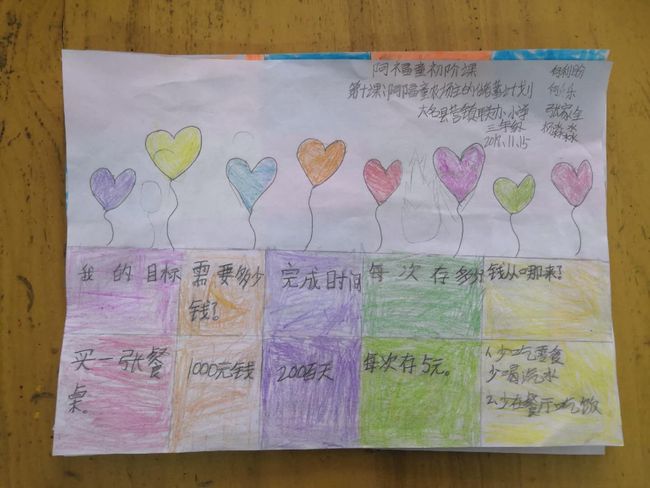 阿福童初阶课
第十课:阿福童农场主的储蓄计划
大名县营镇联办小学
三年级
2018.11.15
何利盼
何乐
张家全
杨淼淼
我的目标 需要多少钱? 完成时间 每次存多少 钱从哪来?
买一张餐桌。 1000元钱 200百天 每次存5元。 1、少吃零食
少喝汽水
2、少在餐厅吃饭